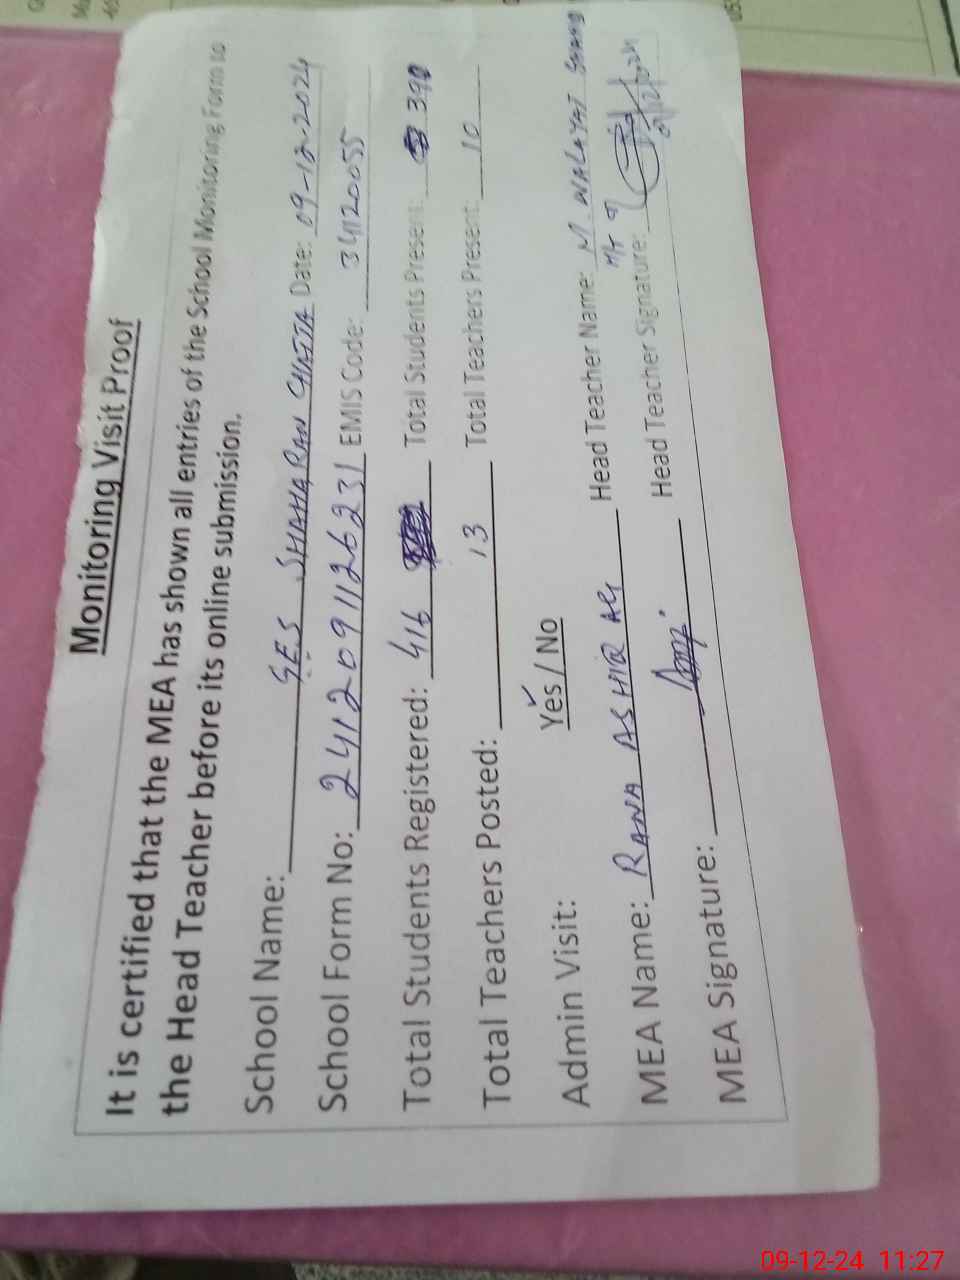 Monitoring Visit Proof
It is certified that the MEA has shown all entries of the School Monitoring Form to
the Head Teacher before its online submission.
School Name: GES SHAHARAN CHATTA Date: 09-12-2024
School Form No: 2412091126231 EMIS Code: 34120055
Total Students Registered: 416 Total Students Present: 390
Total Teachers Posted: 13 Total Teachers Present: 10
Admin Visit: Yes / No
MEA Name: RANA ASHIQ ALI Head Teacher Name: M. WALAYAT
MEA Signature: Head Teacher Signature:
09-12-24 11:27